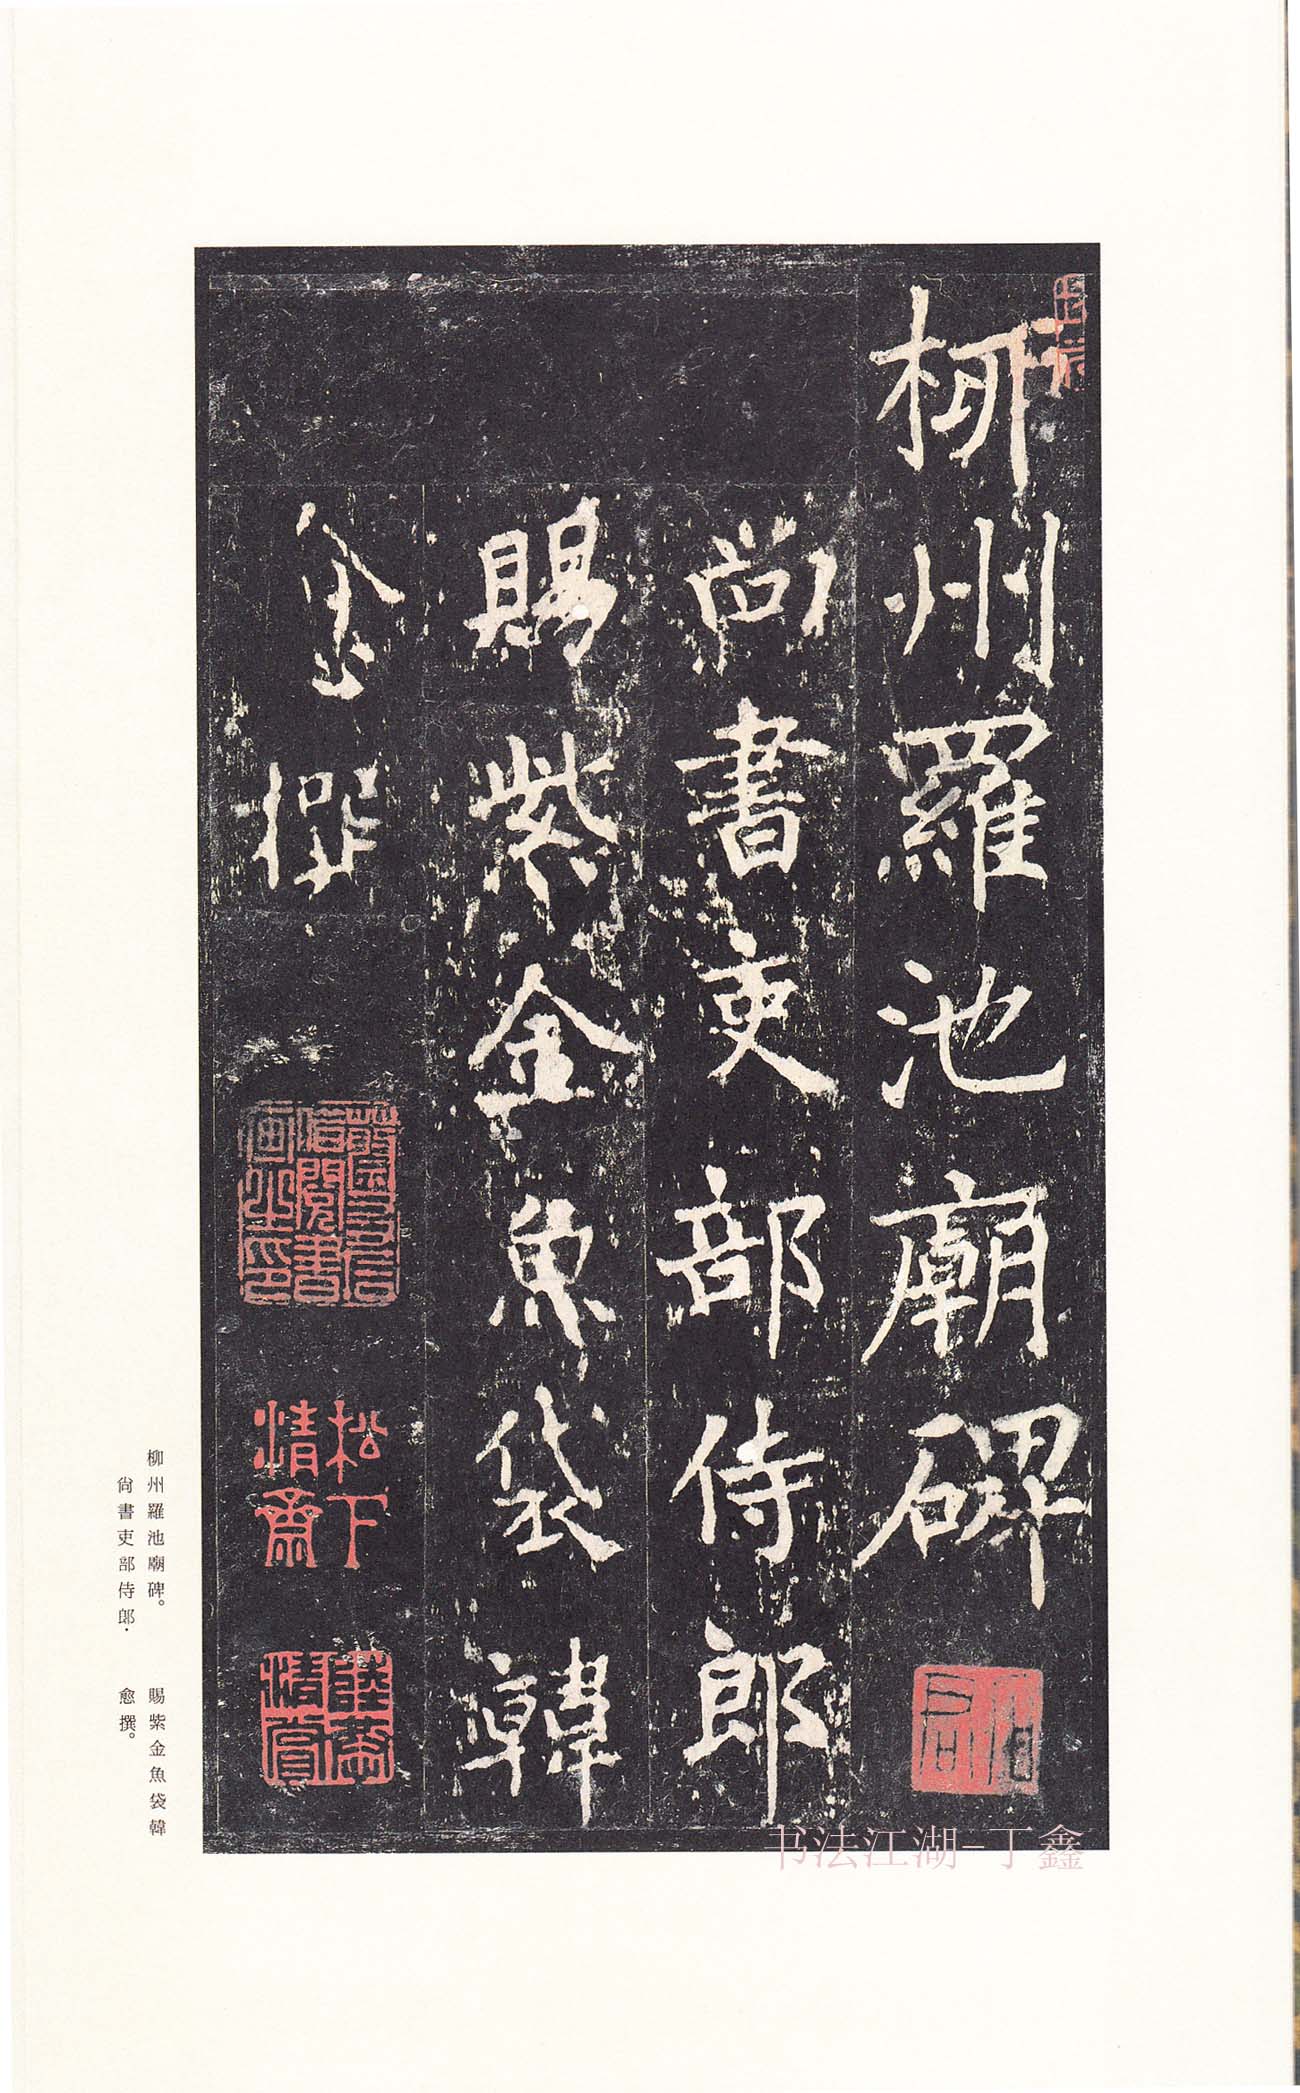 柳州羅池廟碑
尚書吏部侍郎
賜紫金魚袋韓
愈撰
松下
清齋
柳州羅池廟碑。
尚書吏部侍郎·
賜紫金魚袋韓
愈撰。
书法江湖-丁鑫